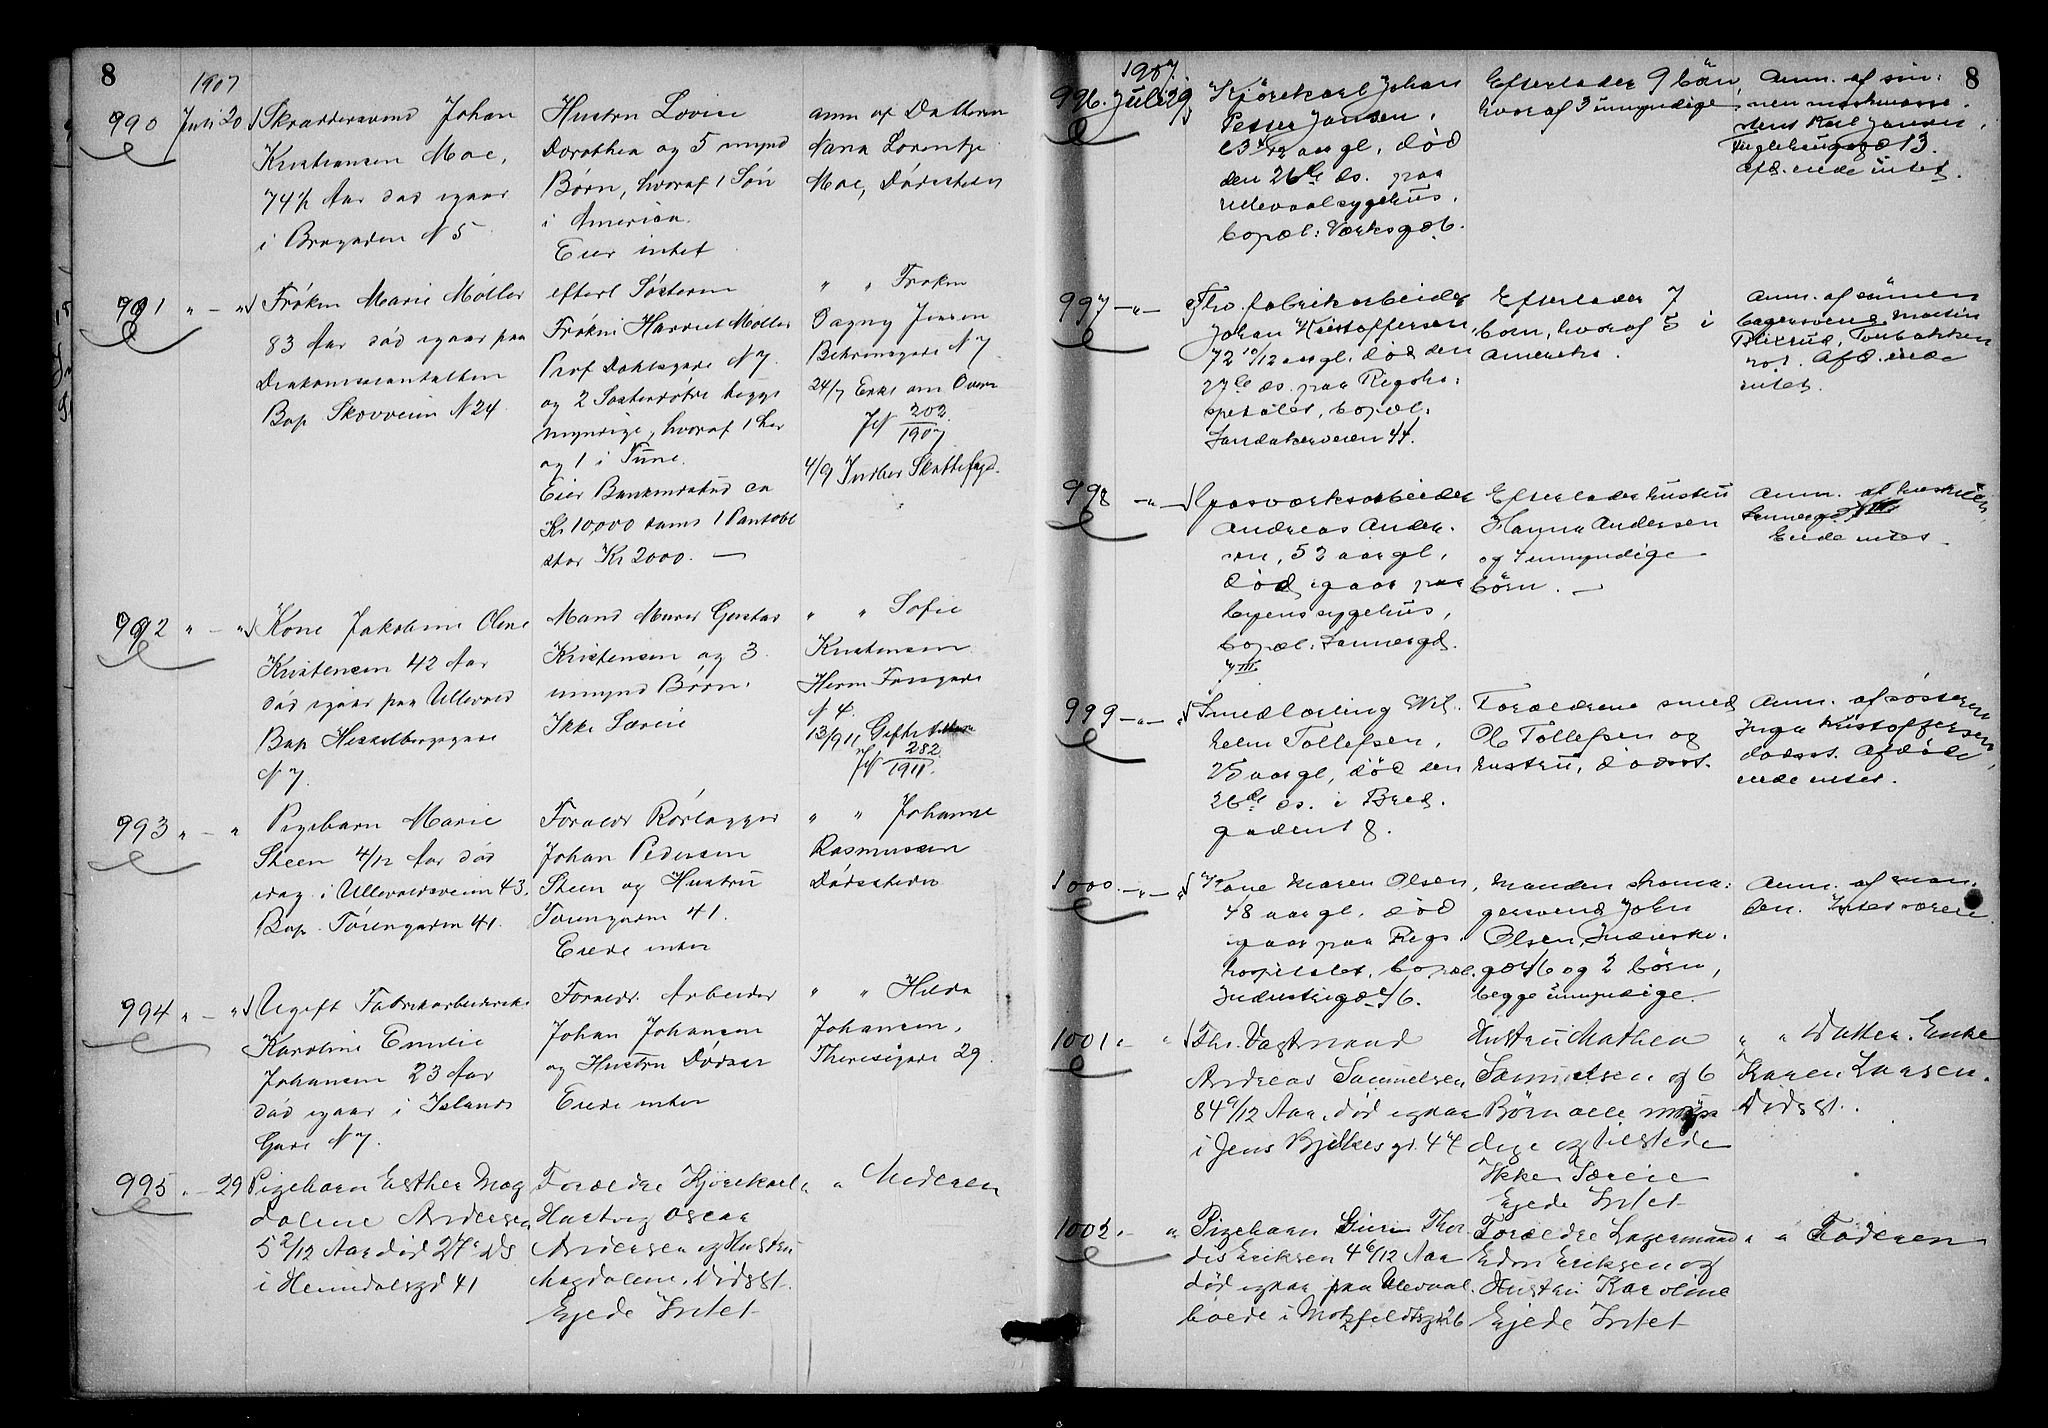 8
1907
990 Juli 20 Skræddersvend Johan
Kristiansen Moe,
74½ Aar død igaar
i Brogaden N 5
Hustru Lovise
Dorothea og 5 mynd
Børn, hvoraf 1 Søn
i Amerika
Eier intet
anm af Datteren
Anna Lorentze
Moe, Dødsstedet
991 " - " Frøken Marie Møller
83 Aar død igaar paa
Diakonissanstalten
Bop Skovveien N 24
efterl Søsteren
Frøken Harriet Møller
Prof Dahlsgade N 7
og 2 Søsterdøtre begge
myndige, hvoraf 1 her
og 1 i Tune.
Eier Bankindskud ca
Kr 10,000 samt 1 Pantobl
stor Kr 2000. —
" " Frøken
Dagny Jensen
Behrensgade N 7
24/7
202
1907
4/9 Indber Skattefogd.
992 " - " Kone Jakobine Olene
Kristensen 42 Aar
død igaar paa Ullevold
Bop Hesselbergsgade
N 7.
Mand Murer Gustav
Kristensen og 3
umynd Børn.
Ikke Særeie
" " Sofie
Kristensen
Herm Fossgade
N 4.
13/9 11 Gifte
282
1911.
993 " - " Pigebarn Marie
Steen 4/12 Aar død
idag i Ullevoldsveien 43.
Bop. Torvgaden 41.
Forældr Rørlægger
Johan Pedersen
Steen og Hustru
Torvgaden 41.
Eiede intet
" " Johanne
Rasmussen
Dødsstedet
994 " - " Ugift Fabrikarbeiderske
Karoline Emilie
Johansen 23 Aar
død igaar i Islands
Gade N 7.
Forældr. Arbeider
Johan Johansen
og Hustru Dødsst
Eiede intet
" " Hilda
Johansen,
Theresegade 29.
995 " - 29 Pigebarn Esther Mag
dalene Andersen
5 2/12 Aar død 27de ds
i Heimdalsgd 41
Forældre Kjørekarl
Hartvig Oscar
Andersen og Hustru
Magdalene, Dødsst.
Ejede Intet
" " Moderen
8
1907.
996. Juli 29 Kjørekarl Johan
Petter Jansen,
den 26de ds. paa
Ullevaal sygehus,
bopæl: Værksgd 6.
Efterlader 9 børn,
hvoraf 3 umyndige
Anm. af søn:
nen maskinassi.
stent Karl Jansen,
13.
Afd. eiede intet.
997 - " - Fhv. fabrikarbeider
Johan Kristoffersen,
72 10/12 aar gl. død den
27de ds. paa Rigsho:
spitalet, bopæl:
Sandakerveien 44.
Efterlader 7
børn, hvoraf 5 i
Amerika.
Anm. af sønnen
bagersvend Martin
Afd. eiede
intet.
998 - " - Gasværksarbeider
Andreas Ander.
sen, 52 aar gl,
død igaar paa
byens sygehus,
bopæl: Sannergd.
7 III
Efterlader hustru
Hanna Andersen
og 4 umyndige
børn. —
Anm. af
Eiede intet.
999 - " - Smedlærling Wil.
helm Tollefsen,
25 aar gl, død den
26de ds. i Bred.
gaden 18.
Forældrene smed
Ole Tollefsen og
hustru, dødsst.
Anm. af søsteren
Inga Kristoffersen,
dødsst. Afdøde
eiede intet.
1000. - " - Kone Maren Olsen,
48 aar gl, død
igaar paa Rigs.
hospitalet, bopæl.
Industrigd 6.
Manden skoma:
gersvend John
Olsen, Industri.
gd 6 og 2 børn,
begge umyndige.
Anm. af man.
den. Intet særeie.
1001. " Fhv. Vagtmand
Andreas Samuelsen
84 9/12 Aar, død igaar
i Jens Bjelkes gd. 47
Hustru Mathea
Samuelsen og 6
Børn alle myn
dige og tilstede
Ikke Særeie
Ejede Intet
" " Datter. Enke
Karen Larsen.
Dødsst.
1002. " Pigebarn Thor
dis Eriksen 4 6/12 Aar
død igaar paa Ulevaal.
boede i Motzfeldtsgd 26
Forældre Lagermand
Edm Eriksen og
Hustru Karoline
Ejede Intet
" " Faderen